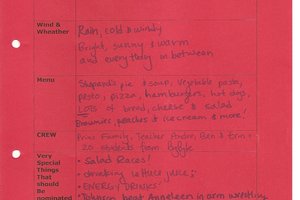 Wind & Wheather
Rain, cold & windy
Bright, sunny & warm
and everything in between
Menu
Shepard's pie & soup, vegetable pasta,
pesto, pizza, hamburgers, hot dogs,
LOTS of bread, cheese & salad
Brownies, peaches & ice cream & more!
CREW
Prins Family, Teacher Andre, Ben & Erin +
20 students from
Very Special Things That should Be nominated
• Salad Races!
• drinking lettuce juice;
• ENERGY DRINKS!
• Johnson beat Anneleen in arm wrestling